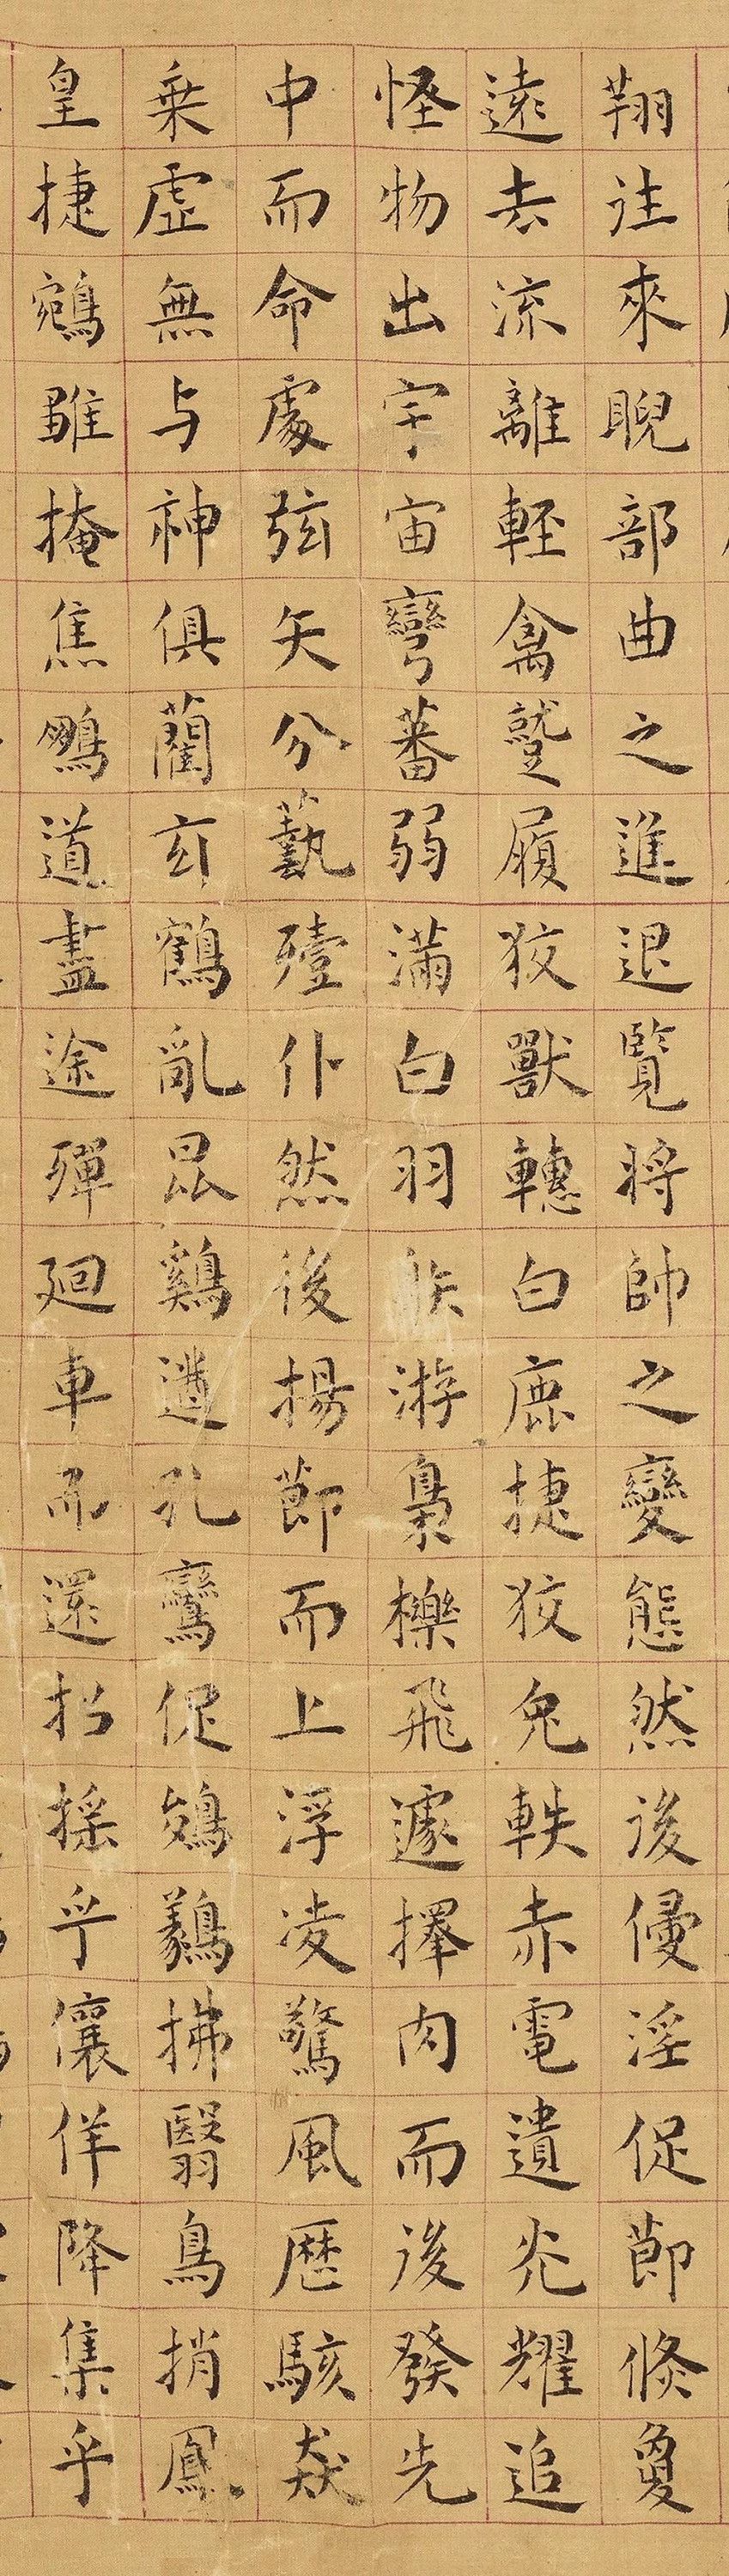 翔往來睨部曲之進退覽將帥之變態然後侵淫促節倏敻
遠去流離輕禽蹵履狡獸轊白鹿捷狡兔軼赤電遺光耀追
怪物出宇宙彎蕃弱滿白羽射游梟櫟飛遽擇肉而後發先
中而命處弦矢分藝殪仆然後揚節而上浮凌驚風歷駭猋
乘虛無与神俱藺玄鶴亂昆鷄遒孔鸞促鵕鸃拂翳鳥捎鳳
皇捷鵷雛掩焦鵬道盡途殫廻車而還招搖乎儴佯降集乎